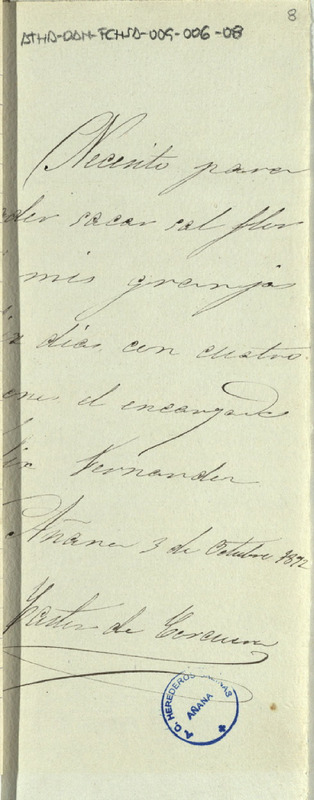 8
ATHA-DAH-FCHSA-009-006-08
Necesito para
der sacar sal flor
mis granjas
dias con cuatro
ones el encargado
Fernandez
Añana 3 de Octubre 1892
de
HEREDEROS SALINAS
AÑANA